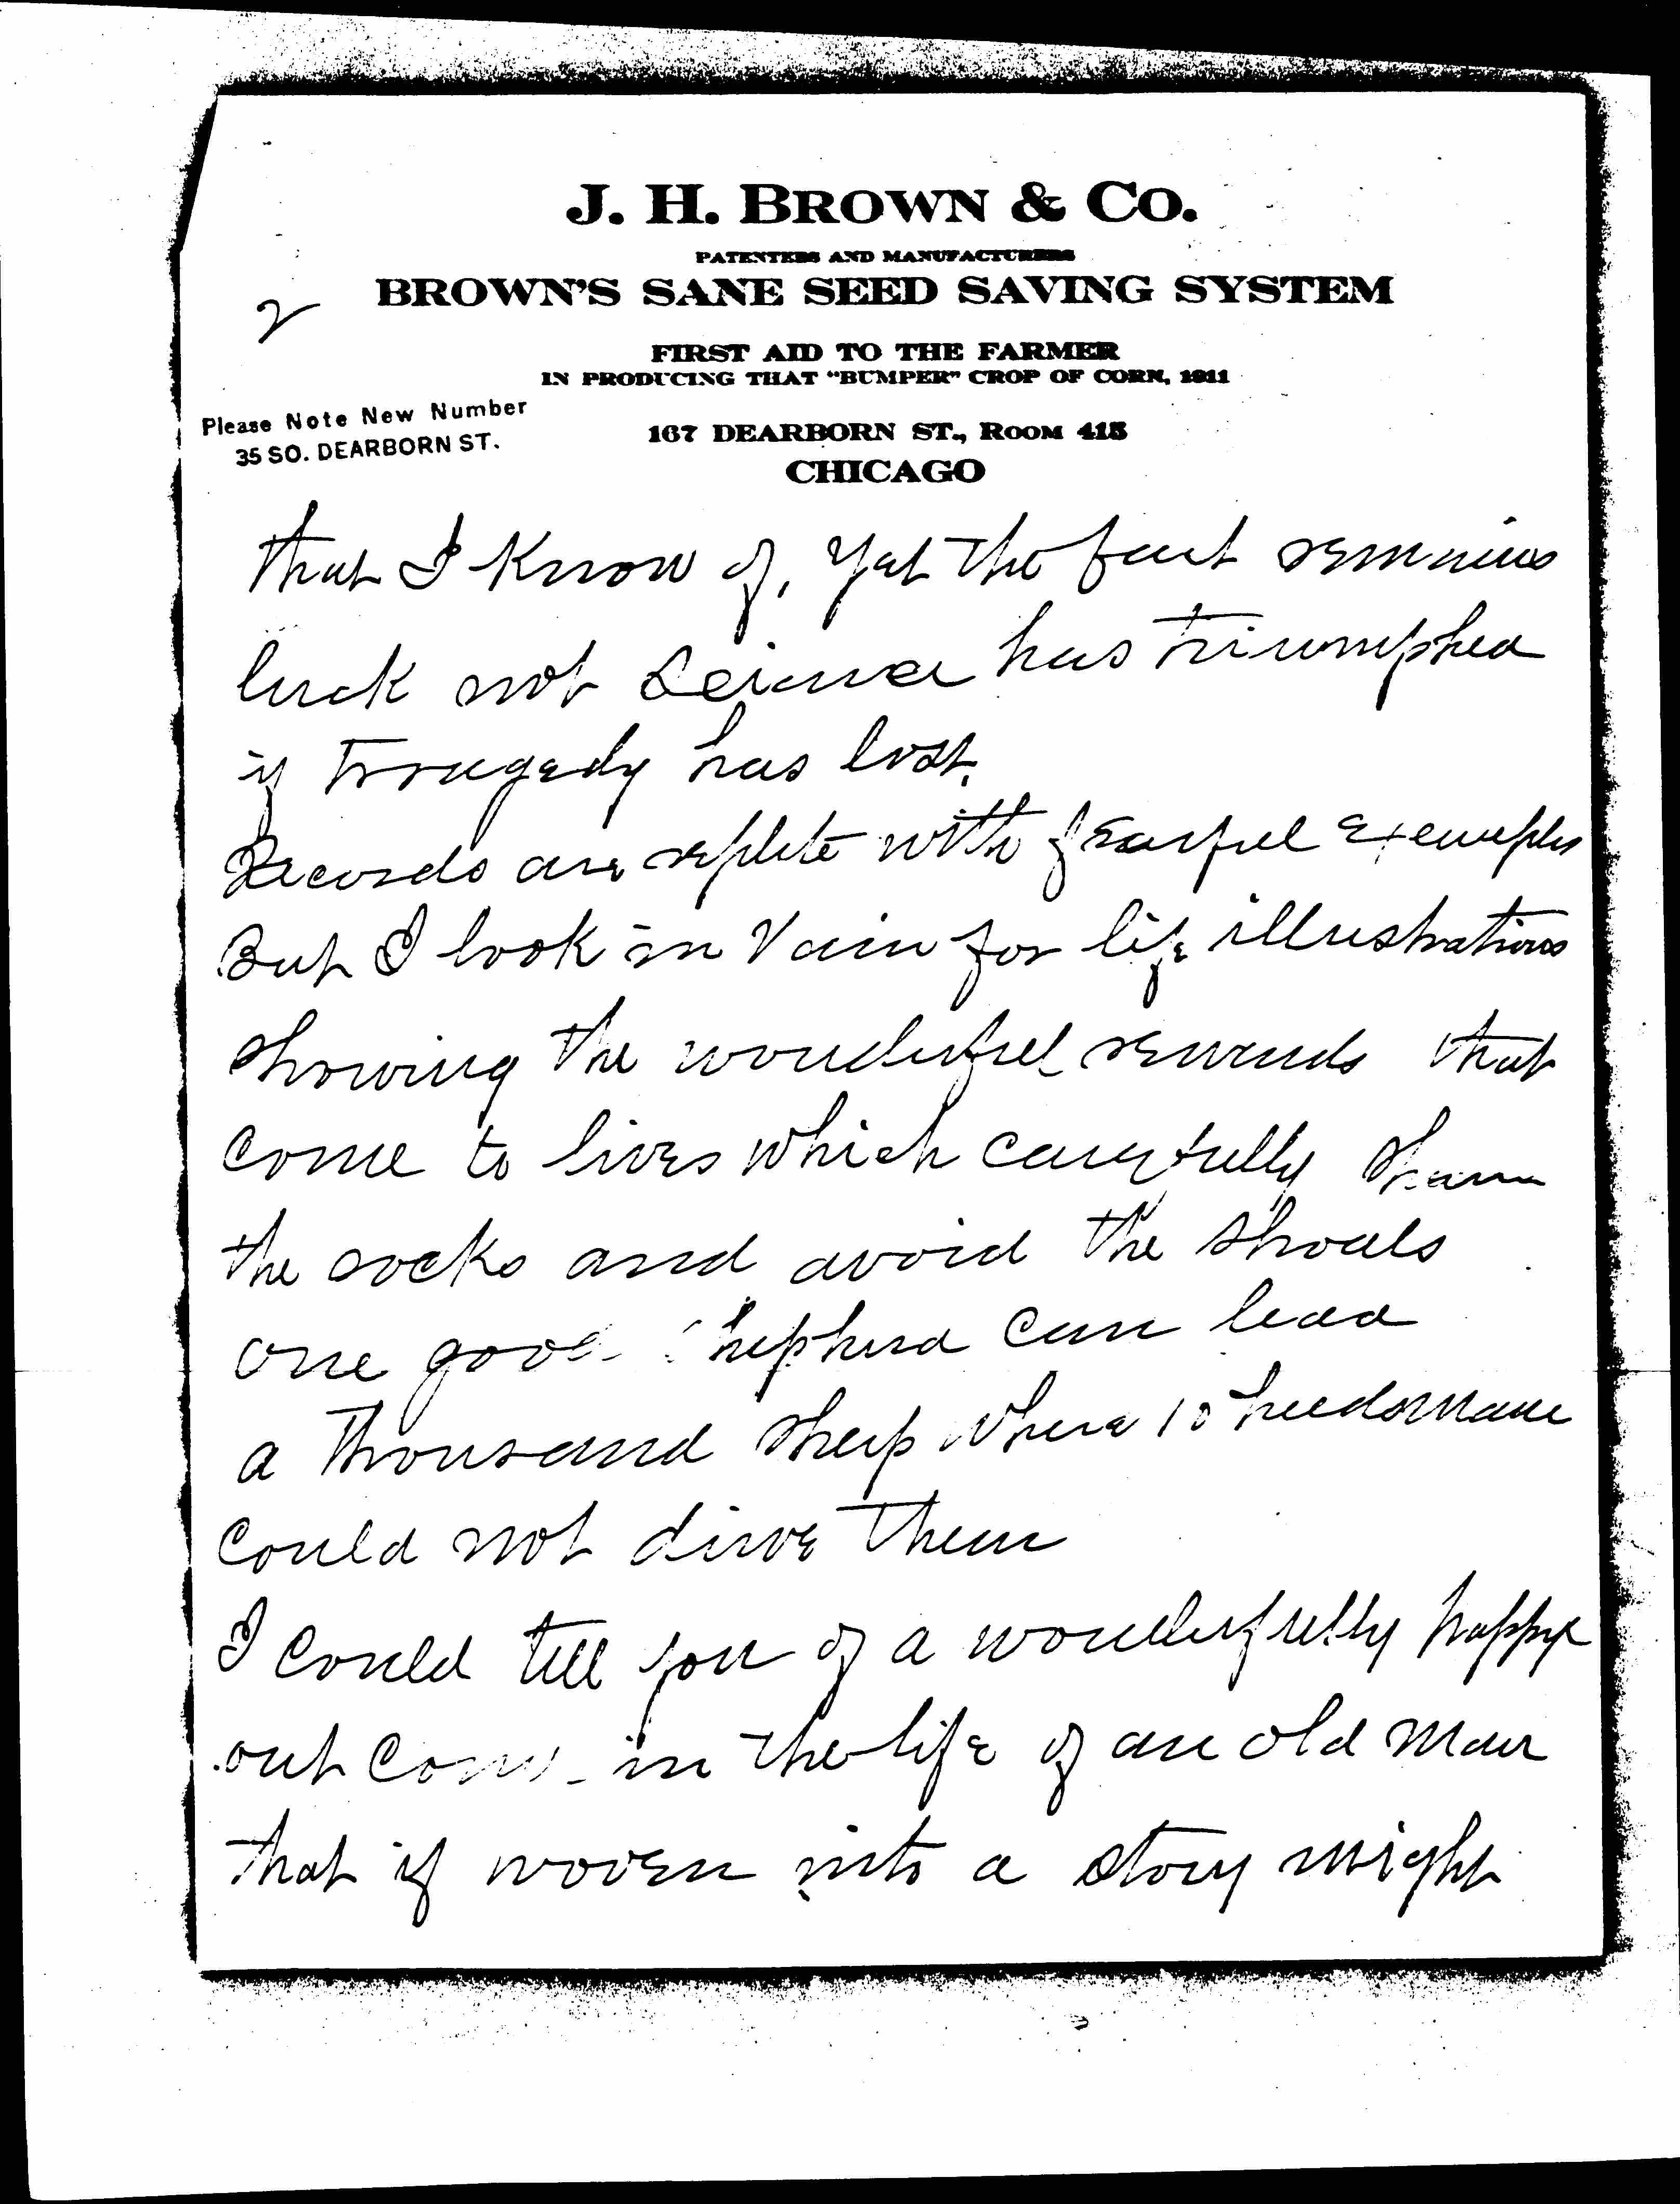 J. H. BROWN & CO.
PATENTEES AND MANUFACTURERS
2
BROWN'S SANE SEED SAVING SYSTEM
FIRST AID TO THE FARMER
IN PRODUCING THAT "BUMPER" CROP OF CORN, 1911
Please Note New Number
35 SO. DEARBORN ST.
167 DEARBORN ST., ROOM 415
CHICAGO
that I Know of, yet the fact remains
luck not Science has triumphed
if tragedy has lost.
Records are replete with fearful examples
But I look in Vain for life illustrations
showing the wonderful rewards that
come to lives which carefully
the rocks and avoid the shoals
one good Shepherd can lead
a thousand sheep where 10
could not drive them
I could tell you of a wonderfully happy
out come in the life of an old man
that if woven into a story might